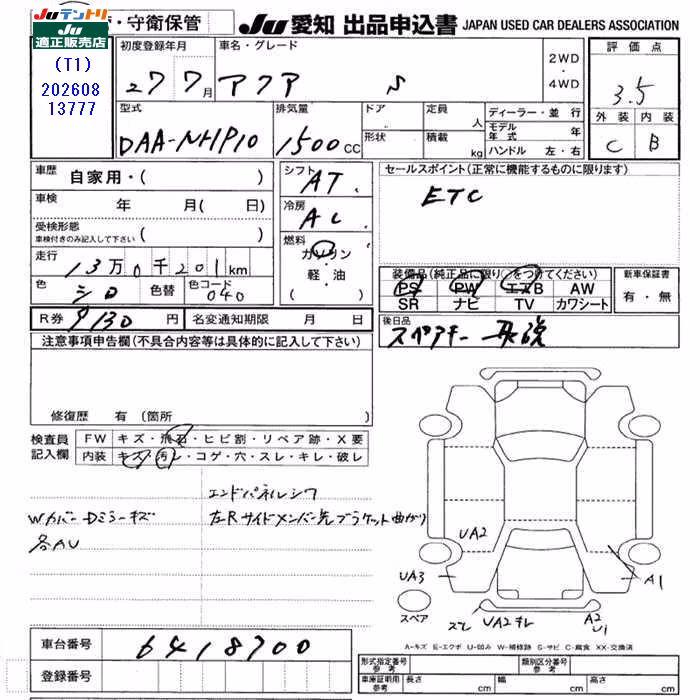 Ju テントリ
Ju 適正販売店
(T1)
202608
13777
・守衛保管
Ju 愛知 出品申込書 JAPAN USED CAR DEALERS ASSOCIATION
初度登録年月 車名・グレード 2WD・4WD 評価点
27 7月 アクア S 3.5
型式 排気量 ドア 定員 人 ディーラー・並行 外装 内装
DAA-NHP10 1500cc 形状 積載 kg モデル年式 年 C B
ハンドル 左・右
車歴 自家用・( )
車検 年 月(日)
受検形態
車検付きのみ記入して下さい ( )
走行 13万0千201km
色 シロ 色替 色コード 040
シフト AT.
冷房 AC.
燃料 ガソリン・軽・油 ( )
セールスポイント(正常に機能するものに限ります)
ETC
装備品(純正品に限り○をつけてください)
PS PW エアB AW
SR ナビ TV カワシート
新車保証書
有・無
R券 9130円 名変通知期限 月 日
後日品 スペアキー 取説
注意事項申告欄(不具合内容等は具体的に記入して下さい)
修復歴 有(箇所 )
検査員記入欄
FW キズ・飛石・ヒビ割・リペア跡・X要
内装 キズ・汚レ・コゲ・穴・スレ・キレ・破レ
エンドパネルシワ
Wカバー Dミラーキズ 左Rサイドメンバー先ブラケット曲がり
各AU
UA2
UA3 A1
スペア スレ UA2キレ A2 U1
A-キズ E-エクボ U-凹み W-補修跡 S-サビ C-腐食 XX-交換済
車台番号 6418700
登録番号
形式指定番号 参考 類別区分番号 参考
車庫証明用 参考 長さ cm 幅 cm 高さ cm